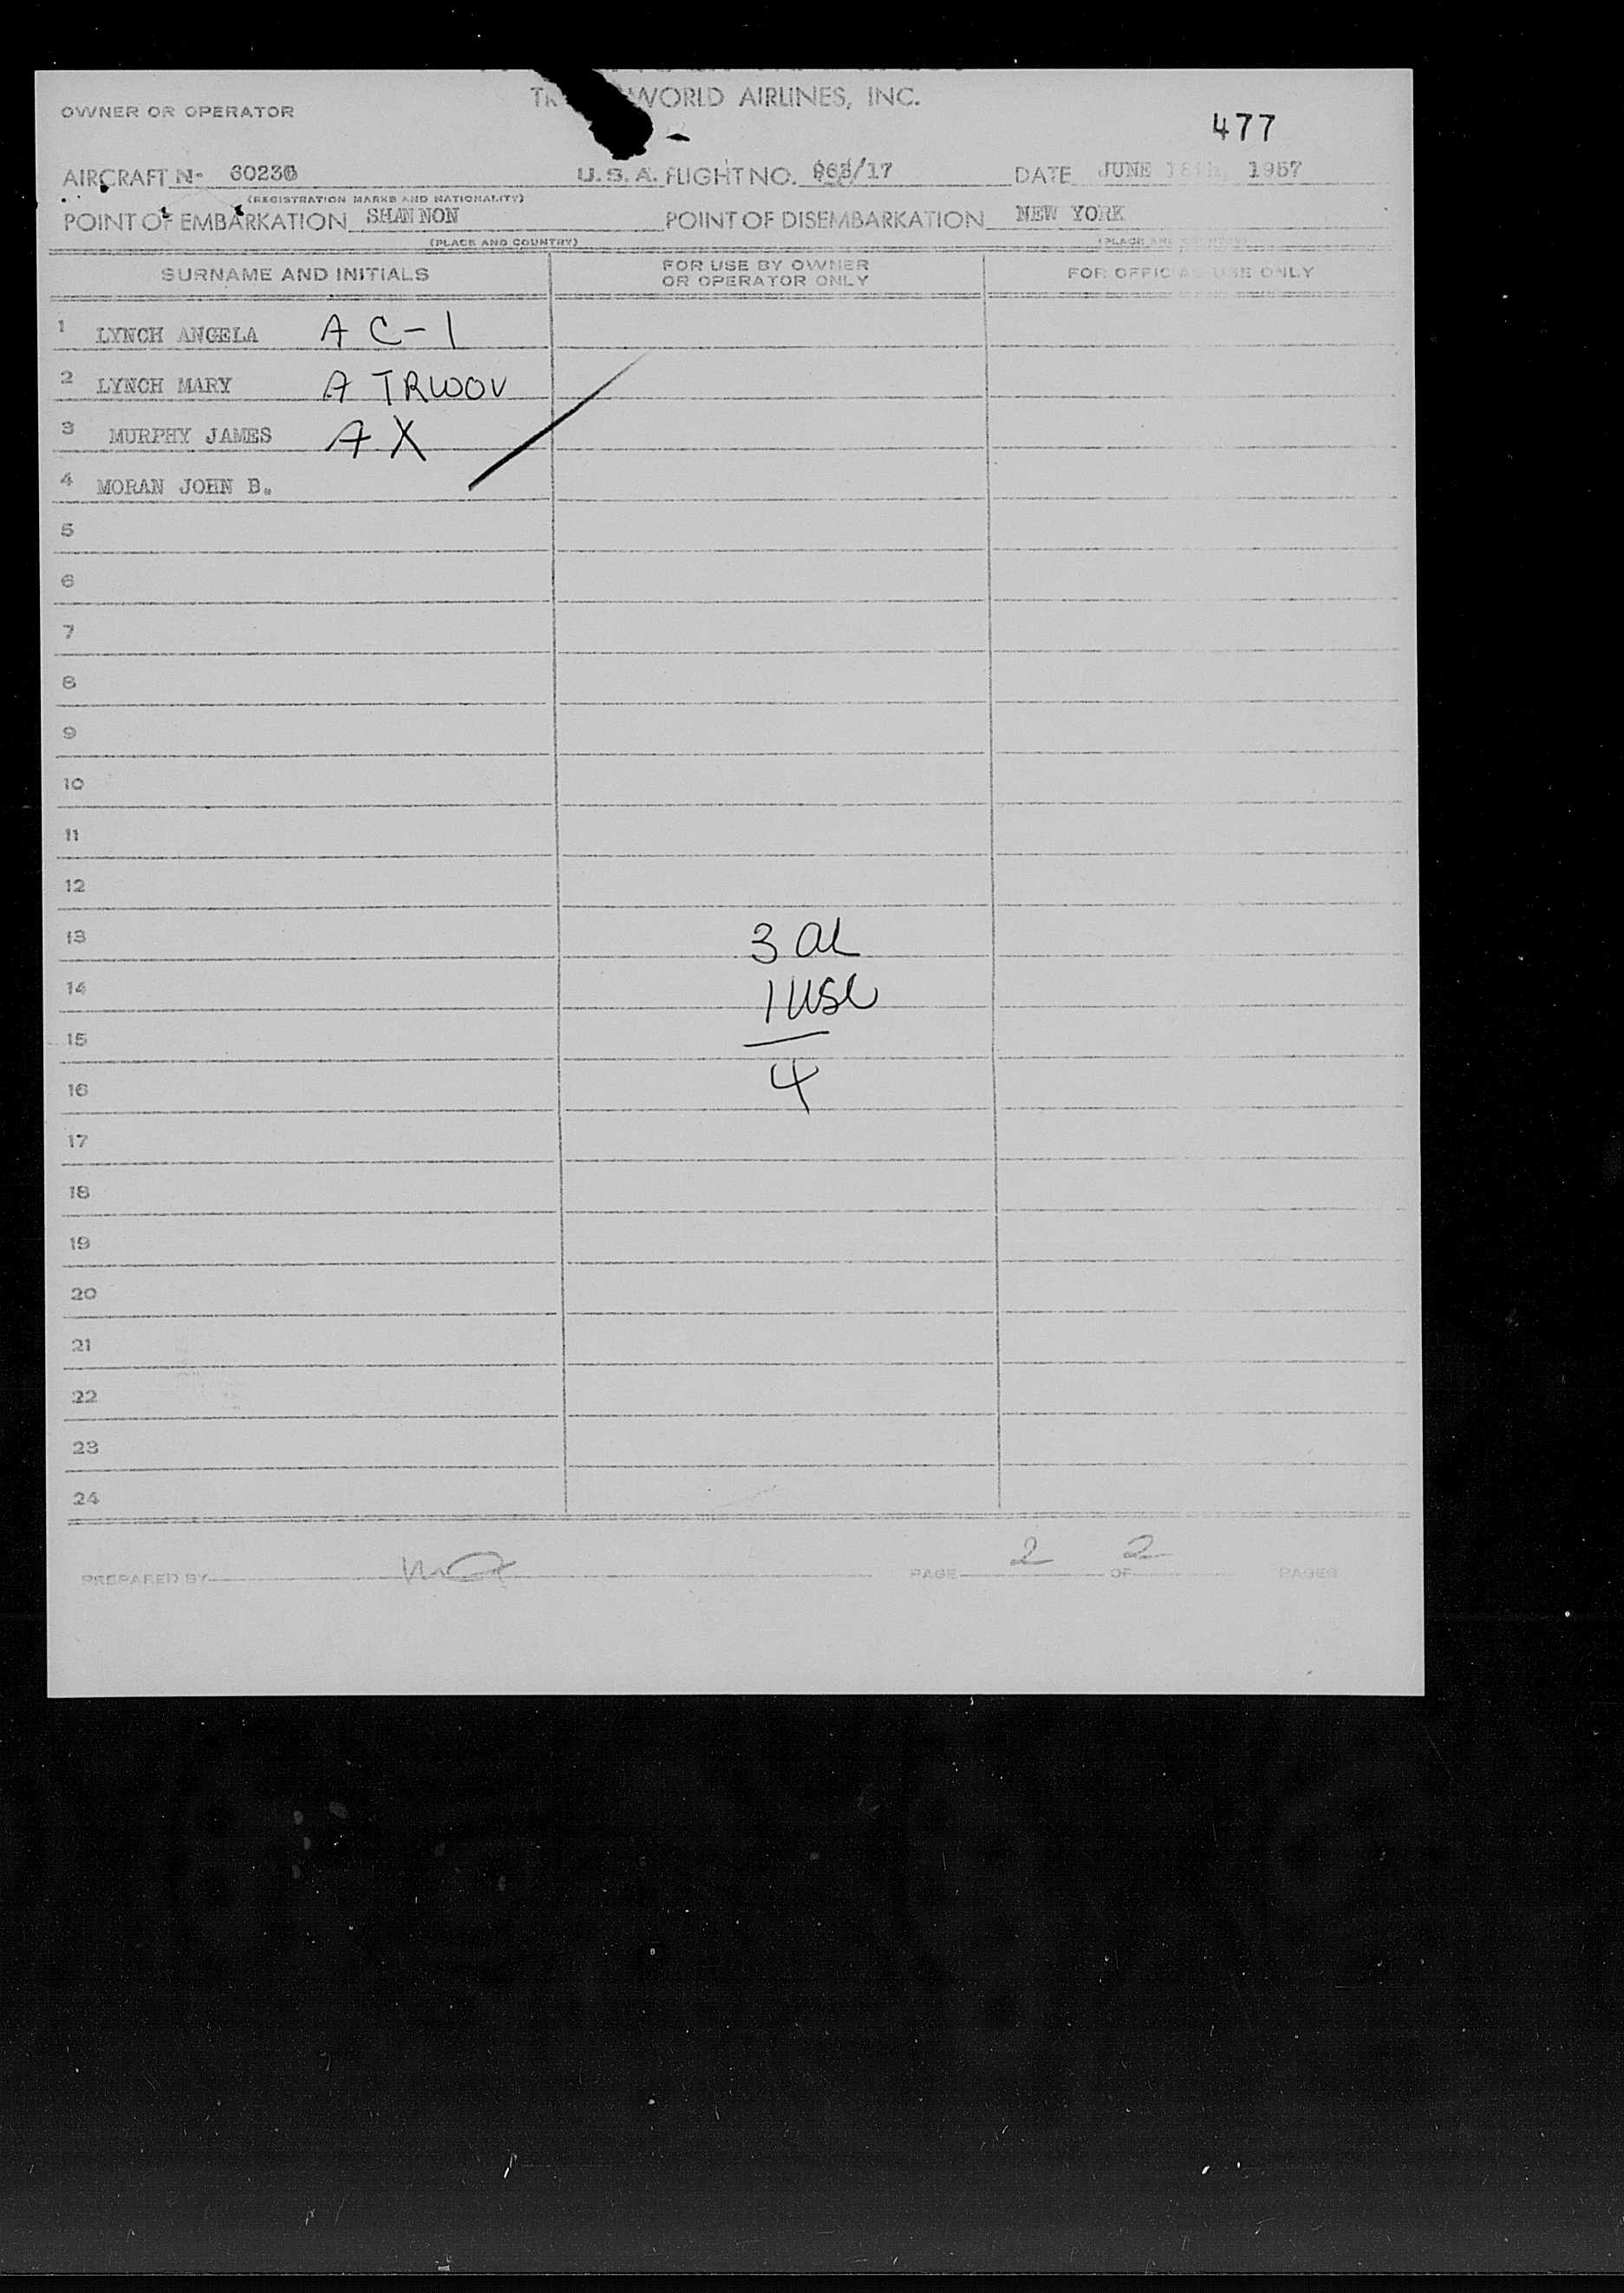 WORLD AIRLINES, INC.
OWNER OR OPERATOR
477
AIRCRAFT N- 60236 U.S.A. FLIGHT NO. /17 DATE JUNE 1957
(REGISTRATION MARKS AND NATIONALITY)
POINT OF EMBARKATION SHANNON POINT OF DISEMBARKATION NEW YORK
(PLACE AND COUNTRY) (PLACE AND COUNTRY)
SURNAME AND INITIALS FOR USE BY OWNER OR OPERATOR ONLY FOR OFFICIAL USE ONLY
1 LYNCH ANGELA A C-1
2 LYNCH MARY A TRWOV
3 MURPHY JAMES A X
4 MORAN JOHN B.
5
6
7
8
9
10
11
12
13 3 al
14 1 USC
15
16 4
17
18
19
20
21
22
23
24
PREPARED BY PAGE 2 OF 2 PAGES